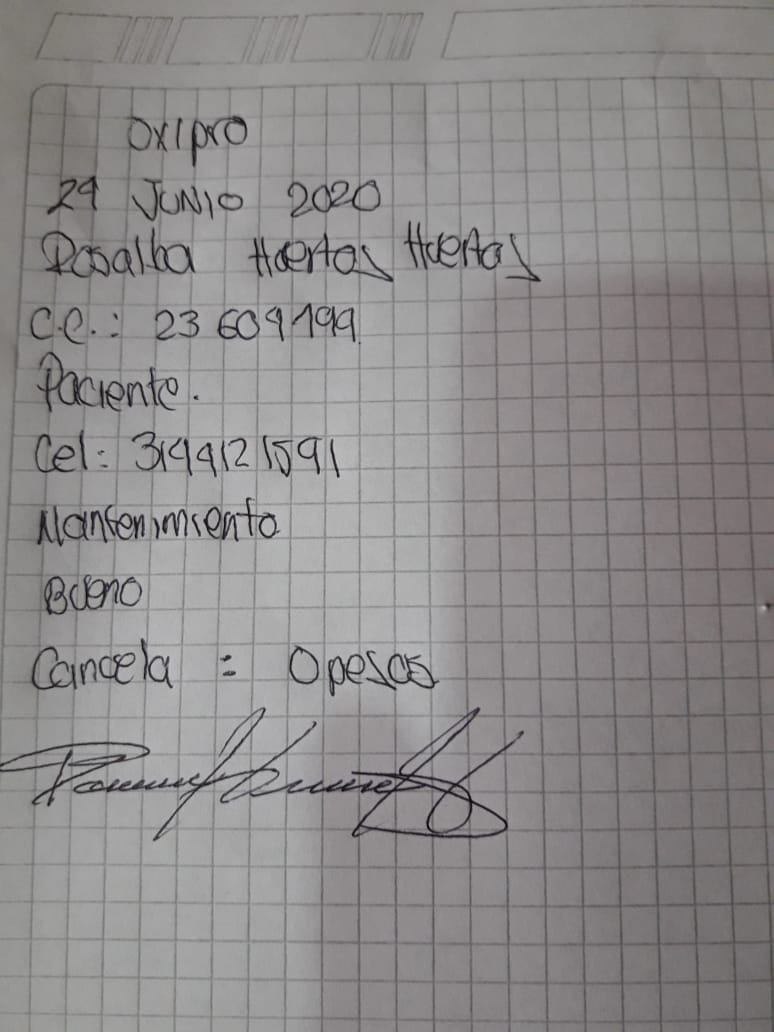 Oxipro
29 JUNIO 2020
Rosalba Huertas Huertas
C.C.: 23 609 199
Paciente.
Cel: 3144121591
Mantenimiento
Bueno
Cancela = 0 pesos